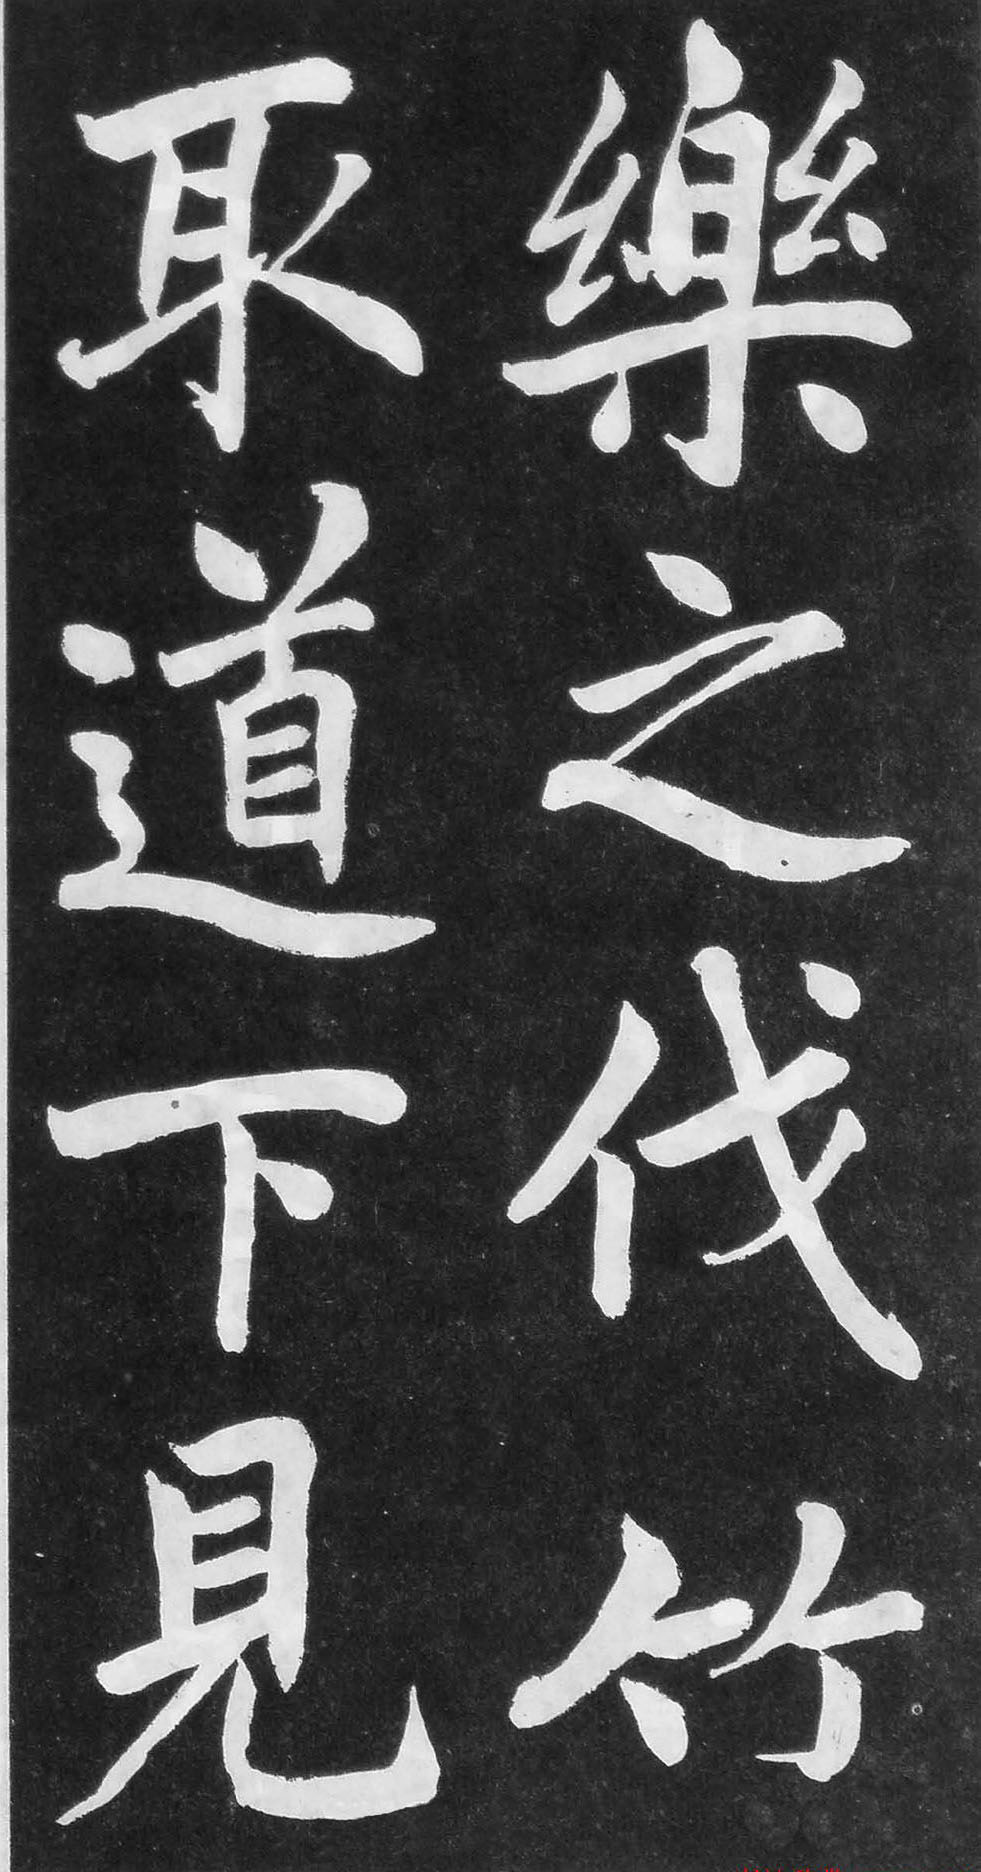 樂之伐竹
取道下見